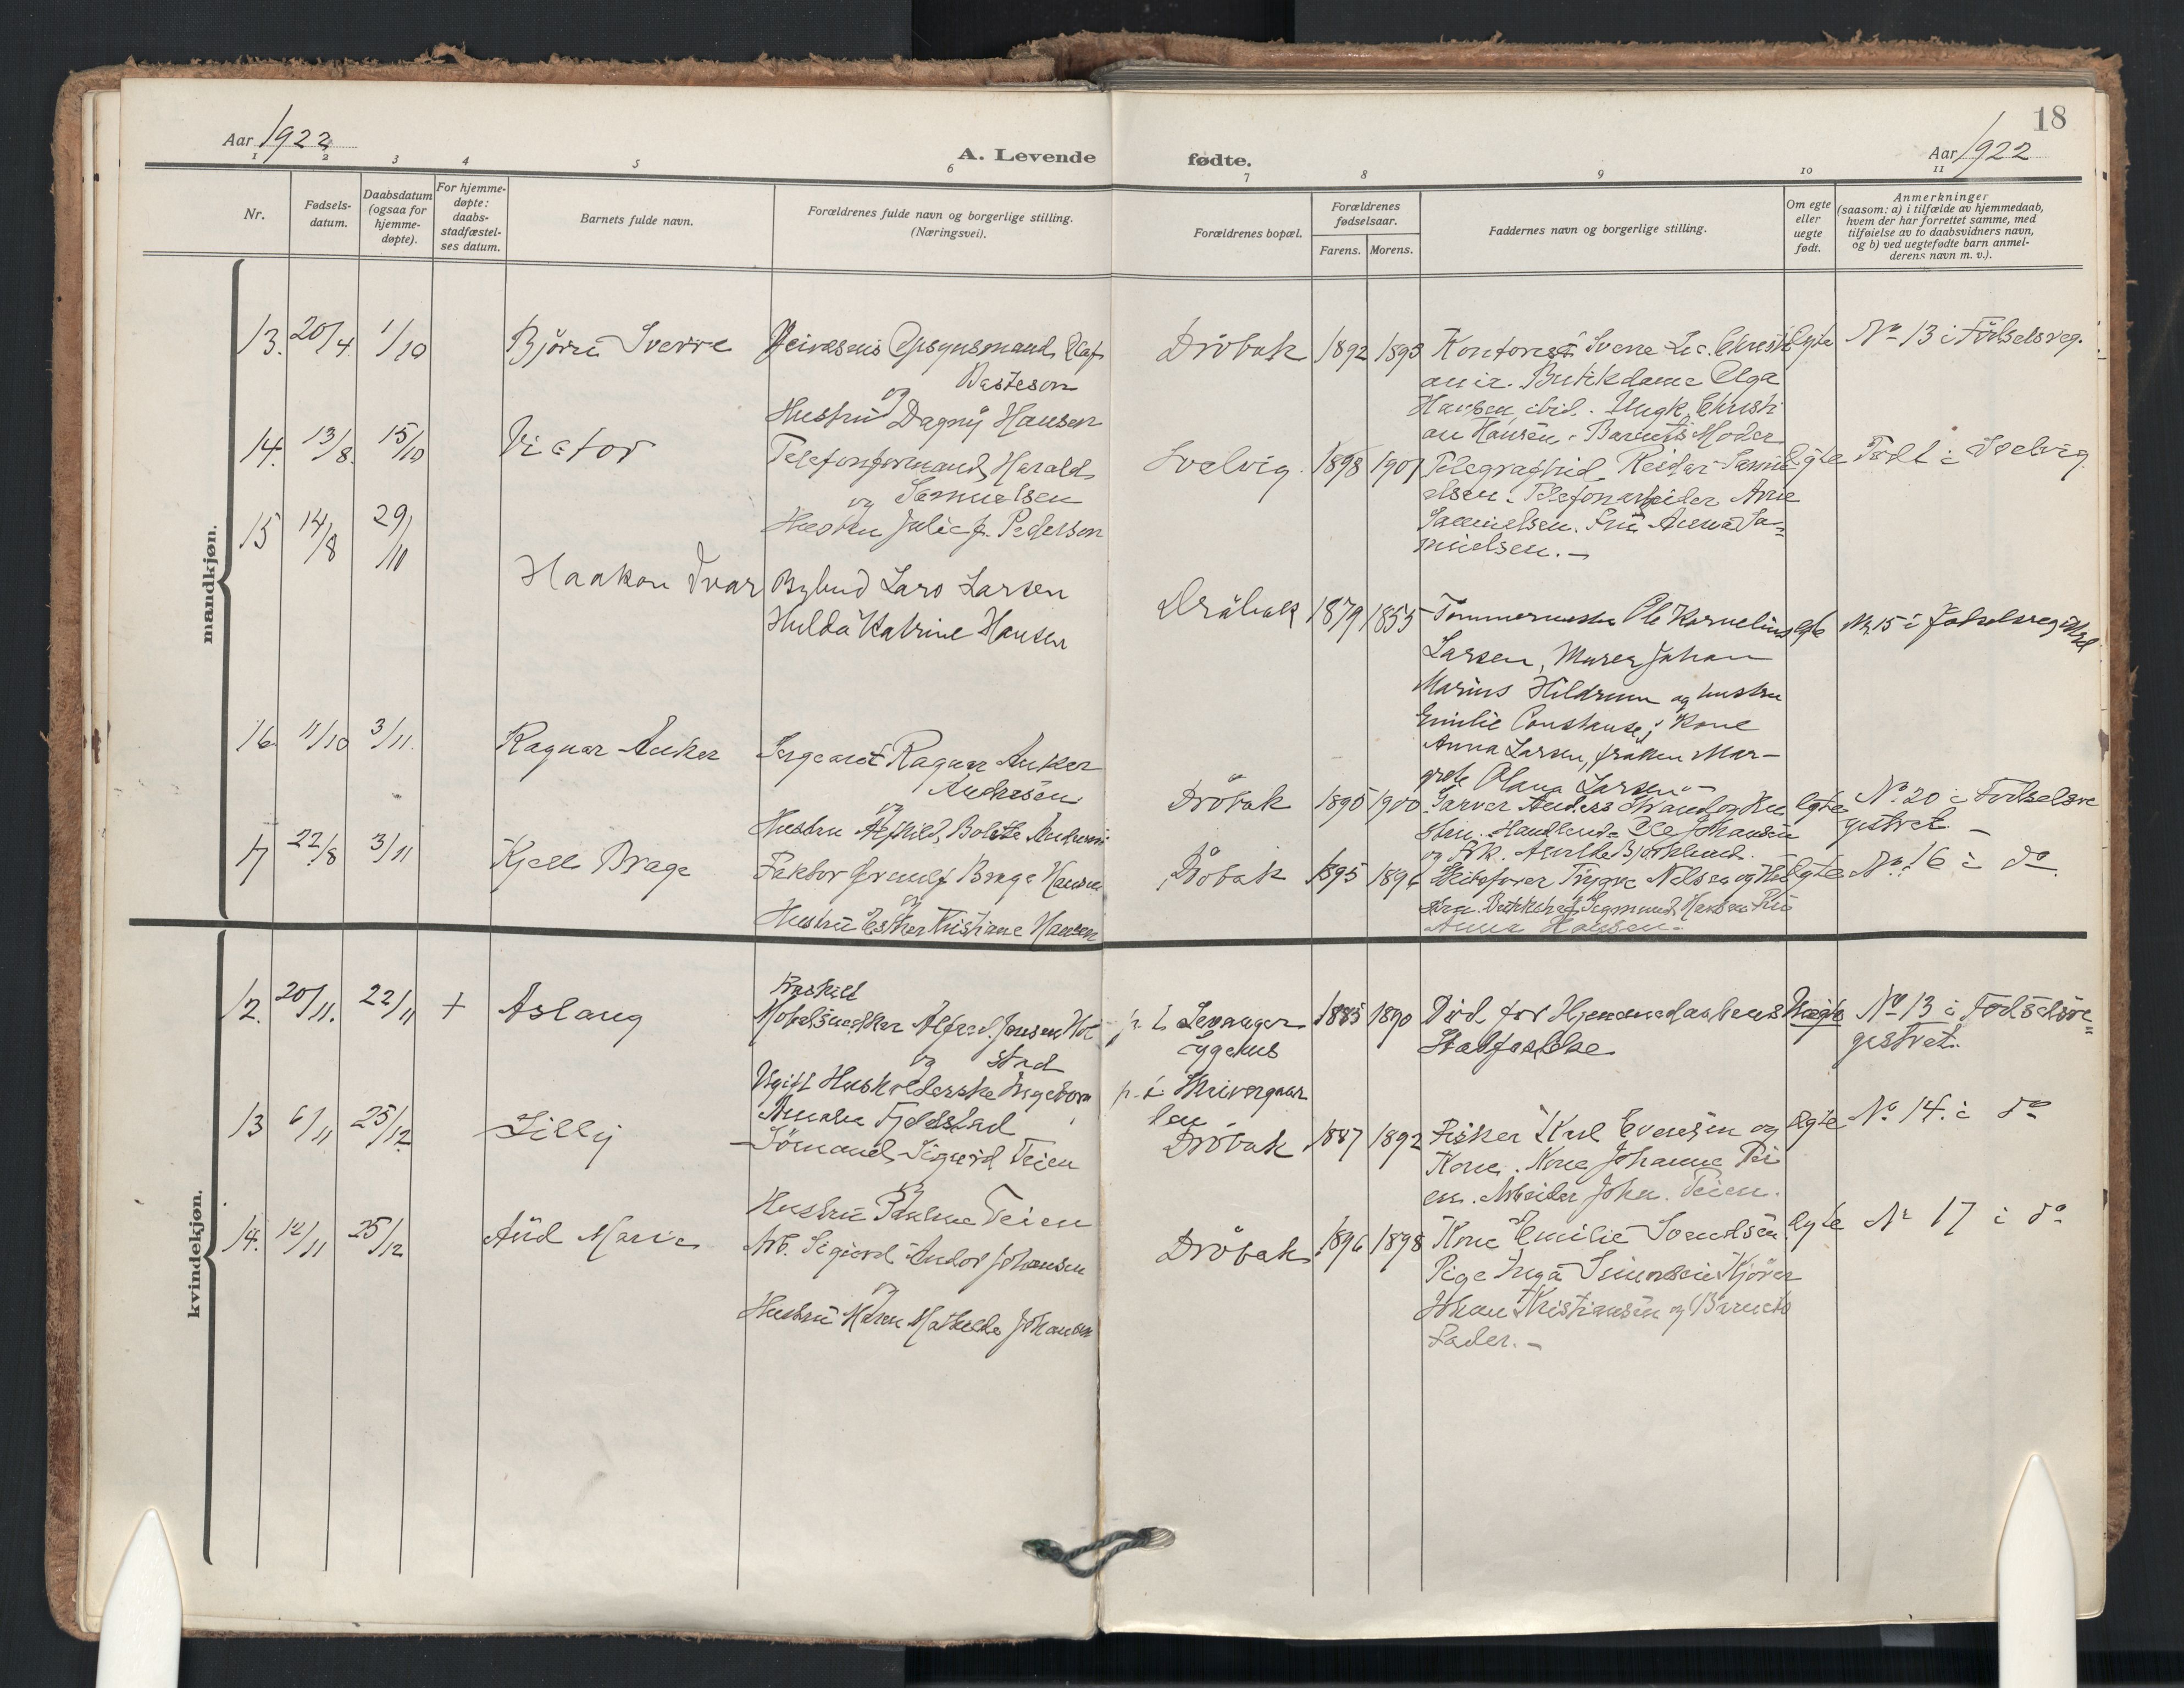 18
Aar 1922
A. Levende
fødte.
Aar 1922
1 2 3 4 5 6 7 8 9 10 11
Nr.
Fødsels-
datum.
Daabsdatum
(ogsaa for
hjemme-
døpte).
For hjemme-
døpte:
daabs-
stadfæstel-
ses datum.
Barnets fulde navn.
Forældrenes fulde navn og borgerlige stilling.
(Næringsvei).
Forældrenes bopæl.
Forældrenes
fødselsaar.
Farens. Morens.
Faddernes navn og borgerlige stilling.
Om egte
eller
uegte
født.
Anmerkninger
(saasom: a) i tilfælde av hjemmedaab,
hvem der har forrettet samme, med
tilføielse av to daabsvidners navn,
og b) ved uegtefødte barn anmel-
derens navn m. v.).
mandkjøn.
13. 20/4 1/10 Björn Sverre
Opsynsmand Olaf
Basteson
og
Hustru Dagny Hansen
Dröbak 1892 1893
Kontorist Sverre
Christi
ania. Butikdame Olga
Hansen ibid. Ungk. Christi
an Hansen. Barnets Moder
Egte
No 13 i Födselsreg.
14. 13/8 15/10 Victor
Telefonformand Harald
og Samuelsen
Hustru Julie Pederson
Svelvig 1898 1901
Reidar Samu
elsen. Telefonarbeider Arne
Samuelsen. Fru Anna Sa=
muelsen.-
Egte
Födt i Svelvig
15 14/8 29/10 Haakon Ivar
Bybud Lars Larsen
Hulda Katrine Hansen
Dröbak 1879
Tømmermester Ole Kornelius
Larsen, Murer Johan
Marius Hildrum og hustru
Emilie Constanse; Kone
Anna Larsen, frøken Mar-
grete Olava Larsen
egte
Nr. 15 i fødselsregistret
16 11/10 3/11 Ragnar Anker
Sergeant Ragnar Anker
Andresen
og
Hustru Bolette
Dröbak 1895 1900
Garver Anders Strand og Hu
stru. Handlende Ole Johansen
og Frk.
Egte
No. 20 i Födselsre
gistret. -
17 22/8 3/11 Kjell Brage
Faktor Brage Hansen
og
Hustru Esther Kristiane Hansen
Dröbak 1895
Trygve Nilsen og Hu
stru. Sigmund Hansen Fru
Anna Hansen.
Egte
No. 16 i do.
kvindekjøn.
12. 20/11. 22/11 + Aslaug
Fraskilt
Möbelsnedker Alfred Jensen
og
Ugift Husholderske Ingeborg
Amalie Fjeldstad
p. t. Levanger
Sygehus
p. t.
1885 1890
Död för Hjemmedaabens
Stadfæstelse
Uegte
No 13 i Födselsre=
gistret.
13 6/11 25/12 Lilly
Sömand Sigurd Teien
og
Hustru Pauline Teien
Dröbak 1887 1892
Fisker Karl Evensen og
Kone. Kone Johanne Tei
en. Arbeider Johan Teien.
Egte
No. 14. i do
14. 12/11 25/12 Aud Marie
Arb. Sigurd Andor Johansen
og
Hustru Maren Mathilde Johansen
Dröbak 1896 1898
Kone Emilie
Pige Inga Simonsen Kjörer
Johan Kristiansen og Barnets
Fader.-
Egte
No 17 i do